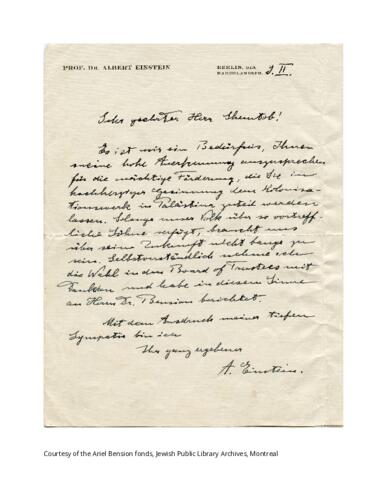 PROF. DR. ALBERT EINSTEIN
BERLIN, DEN
HABERLANDSTR. 5
9. II.
Sehr geehrter Herr Shemtob!
Es ist mir ein Bedürfnis, Ihnen
meine hohe Anerkennung auszusprechen
für die mächtige Förderung, die Sie in
hochherziger Gesinnung dem Kolonisa-
tionswerk in Palästina zuteil werden
lassen. Solange unser Volk über so vortreff-
liche Söhne verfügt, braucht uns
über seine Zukunft nicht bange zu
sein. Selbstverständlich nehme ich
die Wahl in den Board of Trustees mit
Freuden und habe in diesem Sinne
an Herrn Dr. Bension berichtet.
Mit dem Ausdruck meiner tiefen
Sympathie bin ich
Ihr ganz ergebener
A. Einstein.
Courtesy of the Ariel Bension fonds, Jewish Public Library Archives, Montreal